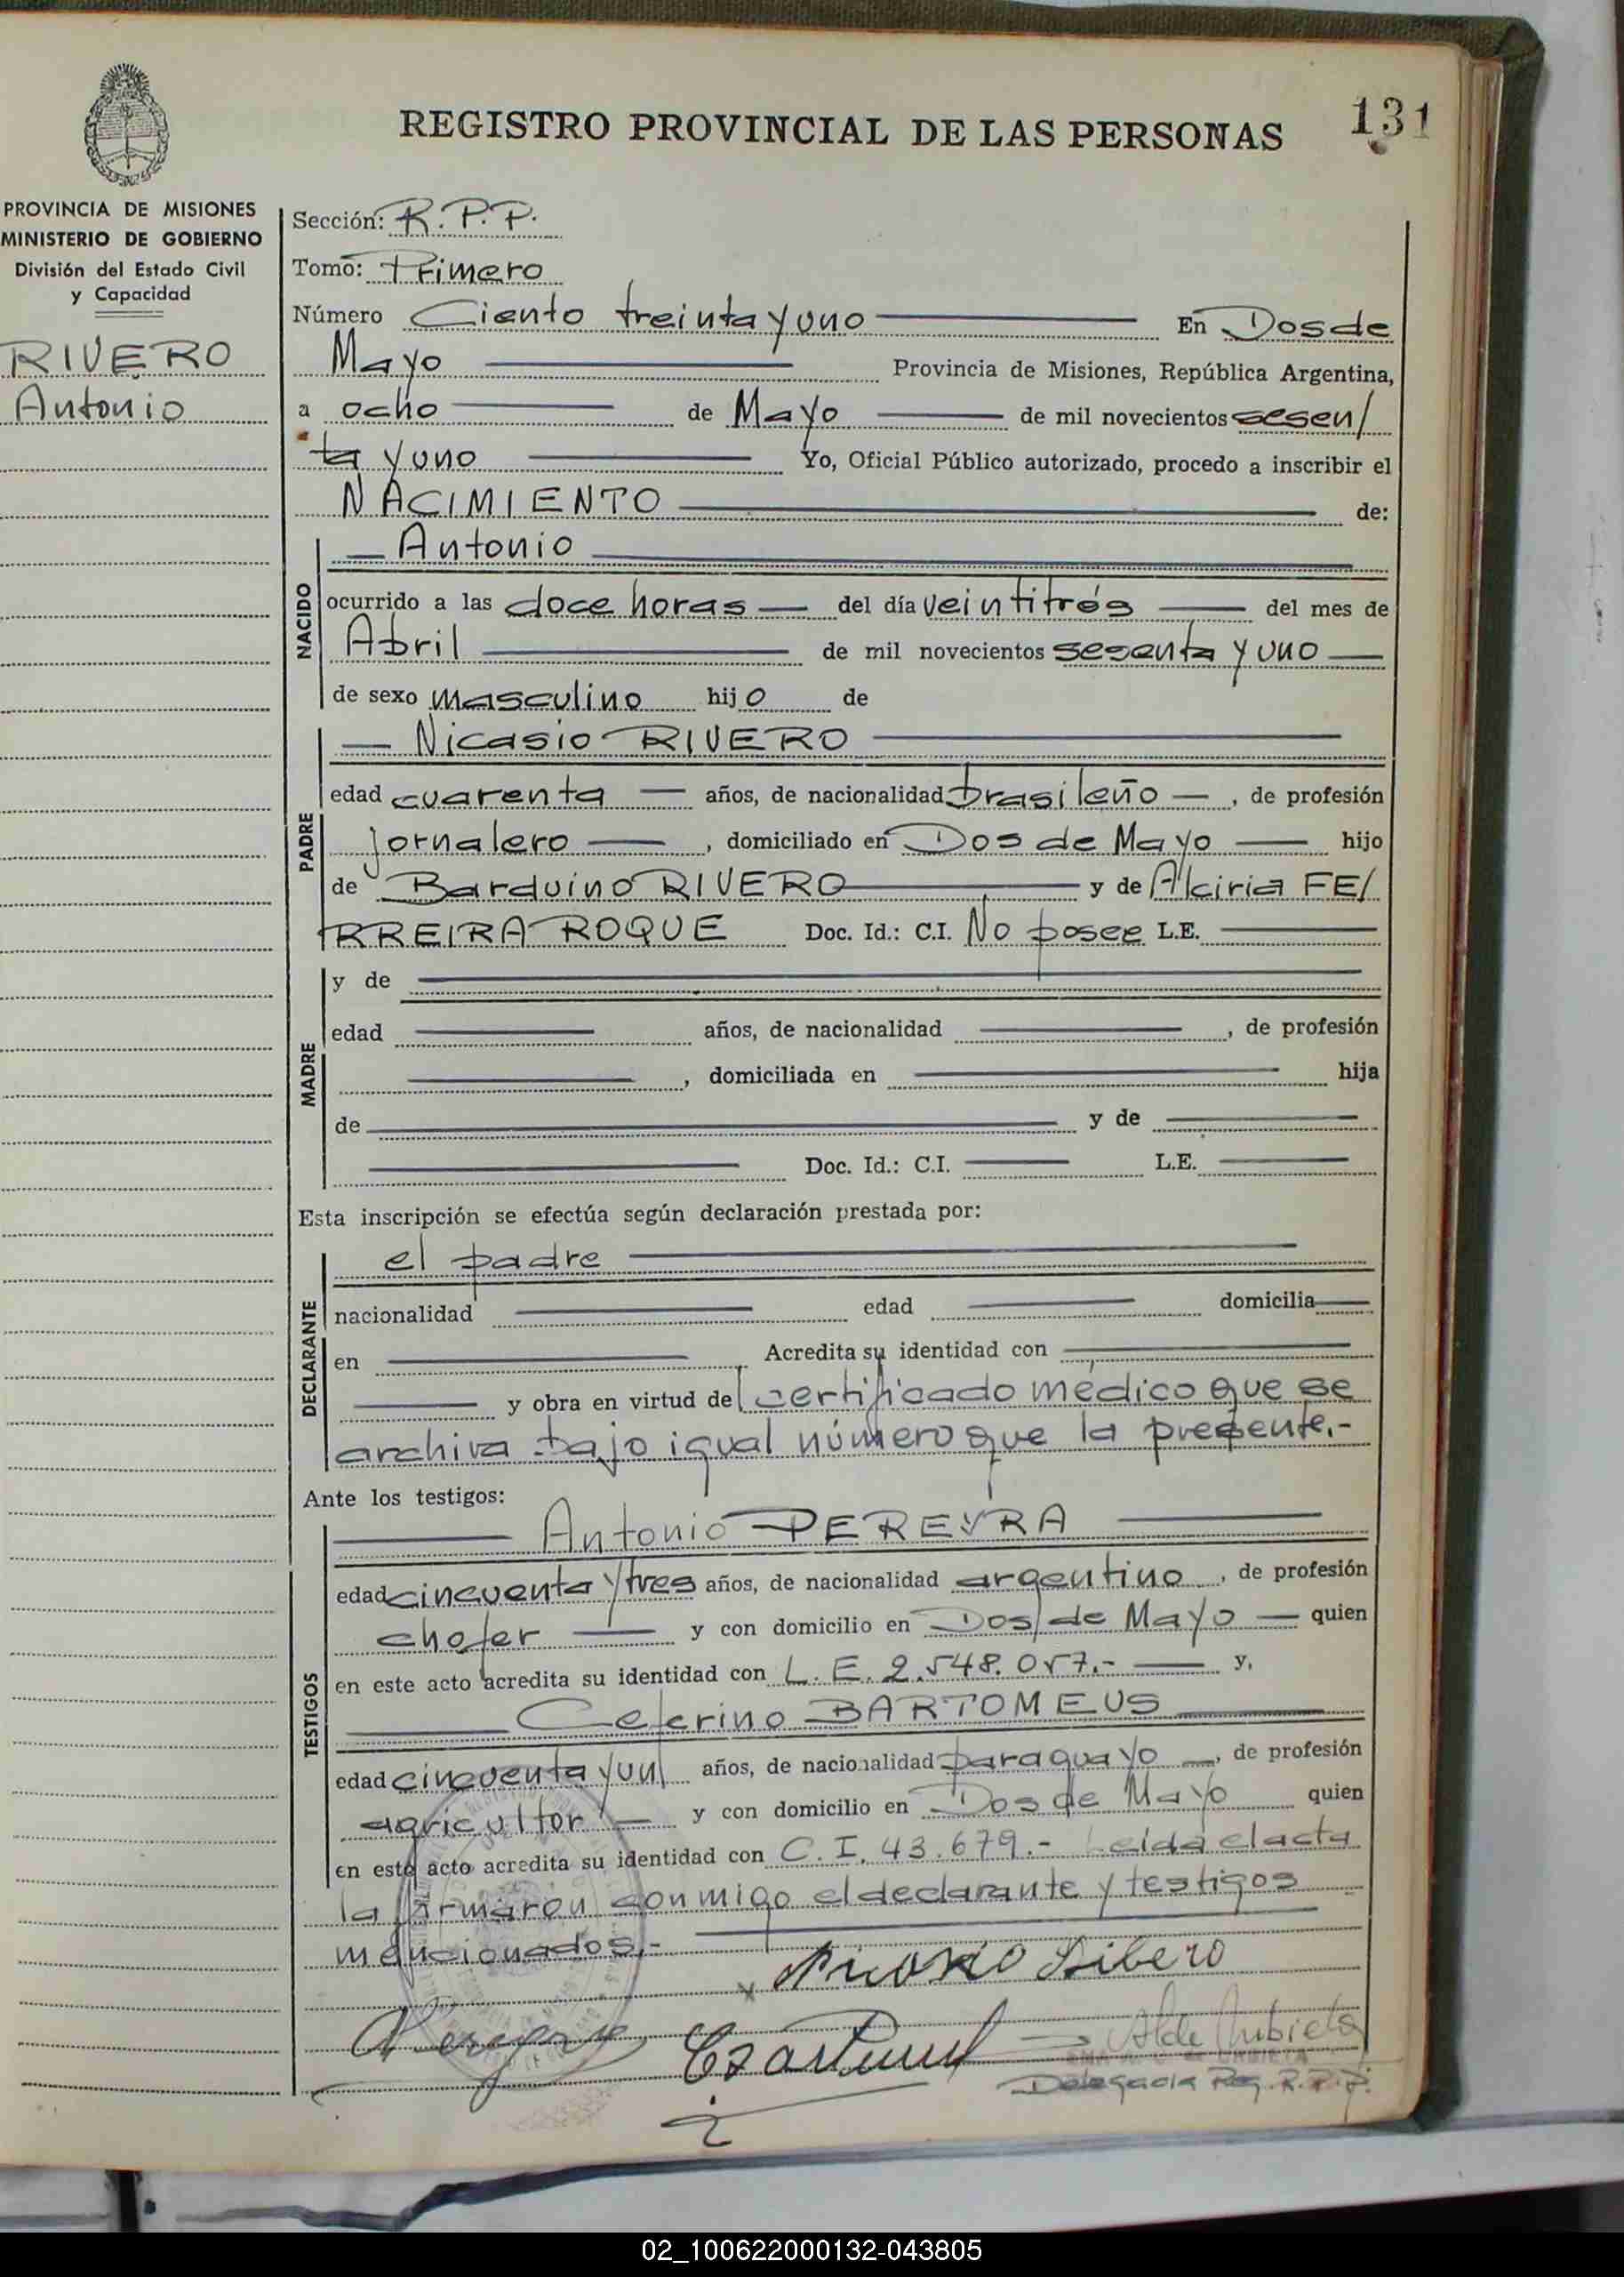 REGISTRO PROVINCIAL DE LAS PERSONAS
131
PROVINCIA DE MISIONES
MINISTERIO DE GOBIERNO
División del Estado Civil
y Capacidad
RIVERO
Antonio
Sección: R.P.P.
Tomo: Primero
Número Ciento treinta y uno En Dos de
Mayo Provincia de Misiones, República Argentina,
a ocho de Mayo de mil novecientos sesen/
ta y uno Yo, Oficial Público autorizado, procedo a inscribir el
NACIMIENTO de:
NACIDO
Antonio
ocurrido a las doce horas del día veintitrés del mes de
Abril de mil novecientos sesenta y uno
de sexo masculino hijo de
PADRE
Nicasio RIVERO
edad cuarenta años, de nacionalidad brasileño, de profesión
jornalero, domiciliado en Dos de Mayo hijo
de Barduino RIVERO y de Alciria FE/
RREIRA ROQUE Doc. Id.: C.I. No posee L.E.
MADRE
y de
edad años, de nacionalidad , de profesión
, domiciliada en hija
de y de
Doc. Id.: C.I. L.E.
Esta inscripción se efectúa según declaración prestada por:
DECLARANTE
el padre
nacionalidad edad domicilia
en Acredita su identidad con
y obra en virtud del certificado médico que se
archiva bajo igual número que la presente.-
Ante los testigos:
TESTIGOS
Antonio PEREYRA
edad cincuenta y tres años, de nacionalidad argentino, de profesión
chofer y con domicilio en Dos de Mayo quien
en este acto acredita su identidad con L.E. 2.548.057.- y,
Ceferino BARTOMEUS
edad cincuenta y un años, de nacionalidad paraguayo, de profesión
agricultor y con domicilio en Dos de Mayo quien
en este acto acredita su identidad con C.I. 43.679.- Leída el acta
la firmaron conmigo el declarante y testigos
mencionados.-
x Nicasio Ribero
Delegada Reg. R.P.P.
02_100622000132-043805